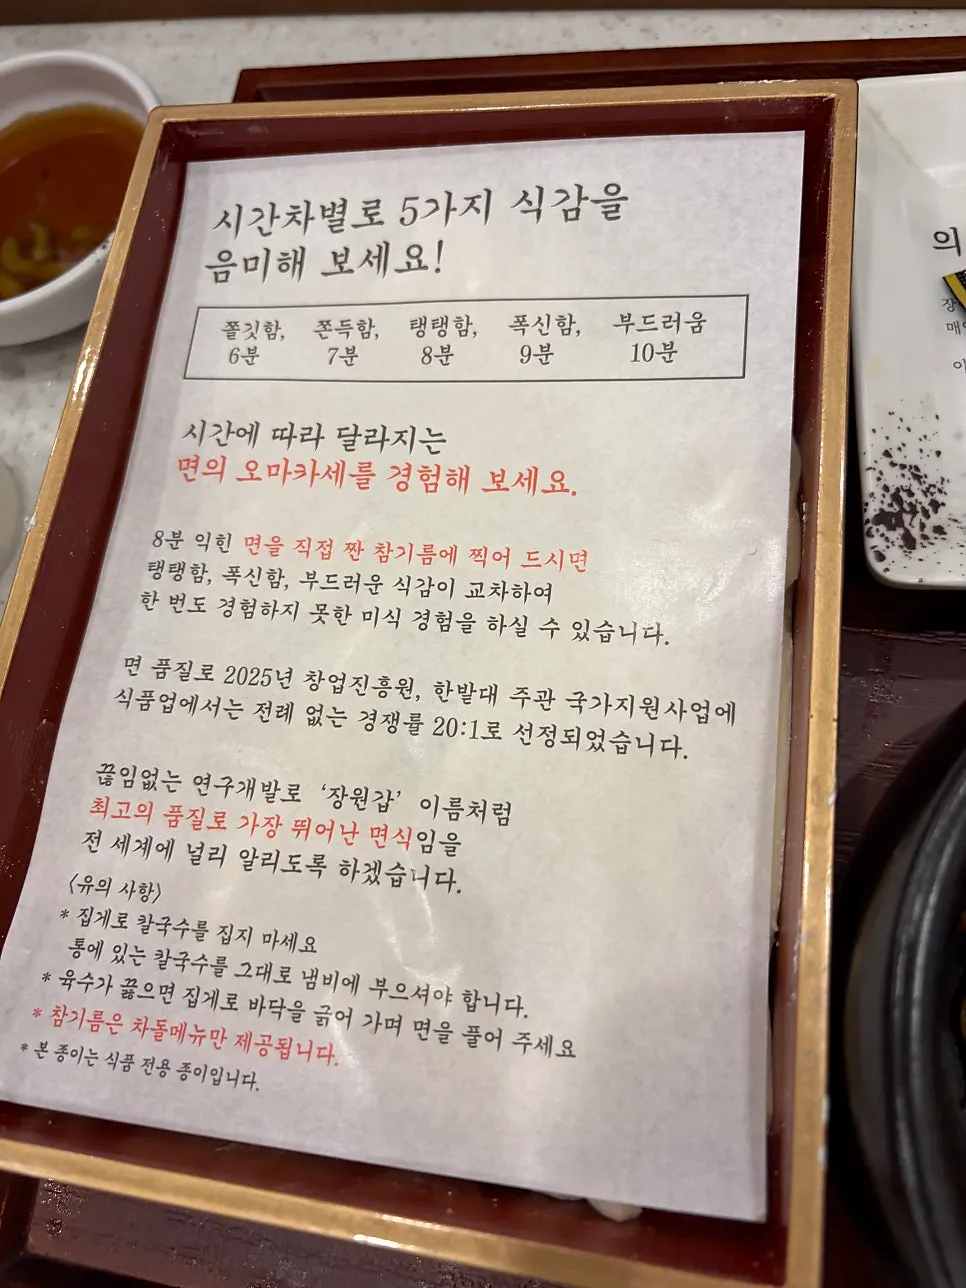 시간차별로 5가지 식감을
음미해 보세요!
쫄깃함, 쫀득함, 탱탱함, 폭신함, 부드러움
6분 7분 8분 9분 10분
시간에 따라 달라지는
면의 오마카세를 경험해 보세요.
8분 익힌 면을 직접 짠 참기름에 찍어 드시면
탱탱함, 폭신함, 부드러운 식감이 교차하여
한 번도 경험하지 못한 미식 경험을 하실 수 있습니다.
면 품질로 2025년 창업진흥원, 한밭대 주관 국가지원사업에
식품업에서는 전례 없는 경쟁률 20:1로 선정되었습니다.
끊임없는 연구개발로 '장원갑' 이름처럼
최고의 품질로 가장 뛰어난 면식임을
전 세계에 널리 알리도록 하겠습니다.
<유의 사항>
* 집게로 칼국수를 집지 마세요
통에 있는 칼국수를 그대로 냄비에 부으셔야 합니다.
* 육수가 끓으면 집게로 바닥을 긁어 가며 면을 풀어 주세요
* 참기름은 차돌메뉴만 제공됩니다.
* 본 종이는 식품 전용 종이입니다.
의